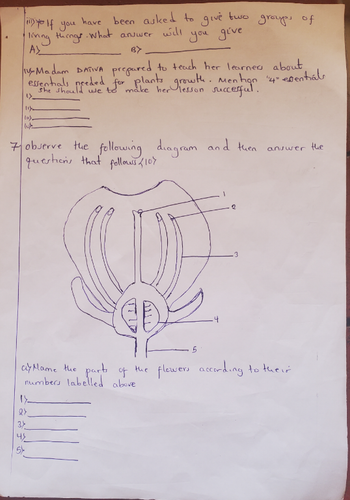 iii) If you have been asked to give two groups of
living things. What answer will you give
A) B)
iv) Madam DATIVA prepared to teach her learners about
essentials needed for plants growth. Mention "4" essentials
she should use to make her lesson succesful.
i)
ii)
iii)
iv)
7. Observe the following diagram and then answer the
questions that follows. (10)
1
2
3
4
5
a) Name the parts of the flowers according to their
numbers labelled above
1)
2)
3)
4)
5)